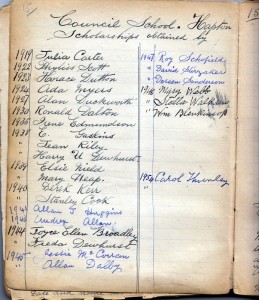 Council School. Hapton
Scholarships obtained by
1919 Julia Carter
1922 Phyllis Scott
1923 Horace Dutton
1926 Ada Myers
1927 Alan Duckworth
1930 Ronald Dalton
1935 Irene Edmundson
1938 C. Gaskins
" Jean Riley
" Harry U Dewhurst
1939 Elsie Nield
" Mary Heap
1940 Derek Kerr
" Stanley Cook
1941 Allan T Huggins
" Audrey Allan
1944 Joyce Ellen Broadley
" Freda Dewhurst
1945 Leslie McCorren
" Allan Dolly
1947 Roy Schofield
" David Stirzaker
" Doreen Sanderson
1948 Mary Webb
" Stella Walker
" Wm Blenkinsop
1950 Carol Thornley